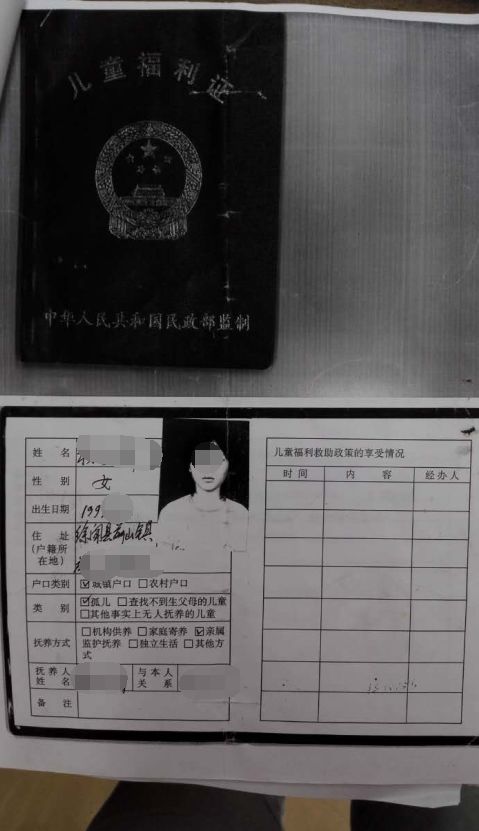 儿童福利证
中华人民共和国民政部监制
姓 名
性 别 女
出生日期 199
住 址
(户籍所
在地)
徐闻县前山镇
户口类别 ☑城镇户口 □农村户口
类 别 ☑孤儿 □查找不到生父母的儿童
□其他事实上无人抚养的儿童
抚养方式 □机构供养 □家庭寄养 ☑亲属
监护抚养 □独立生活 □其他方
式
抚养人
姓名
与本人
关系
备 注
儿童福利救助政策的享受情况
时 间 内 容 经办人